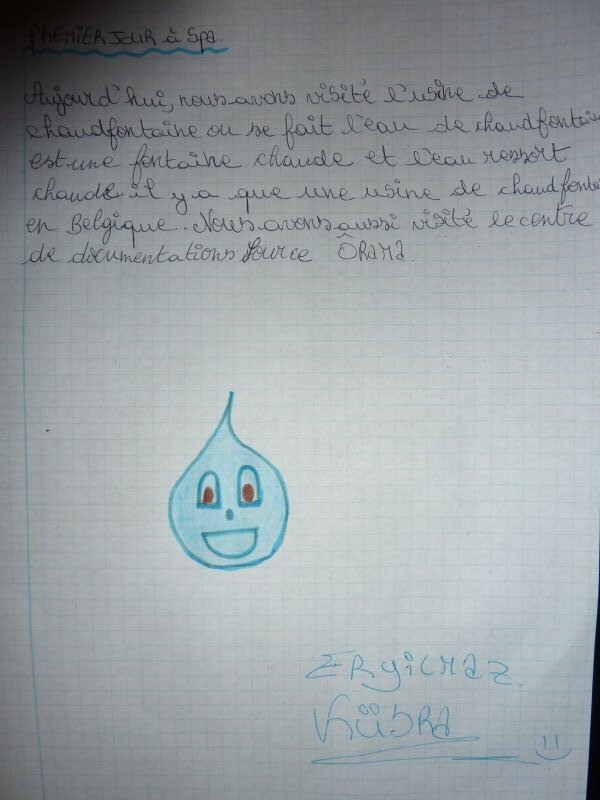 PREMIER JOUR à Spa.
Aujourd'hui, nous avons visité l'usine de
chaudfontaine ou se fait l'eau de chaudfontaine
est une fontaine chaude et l'eau ressort
chaude il y a que une usine de chaudfonta
en Belgique. Nous avons aussi visité le centre
de documentations Source ÔRAMA.
ERyilmaz.
KüBRA